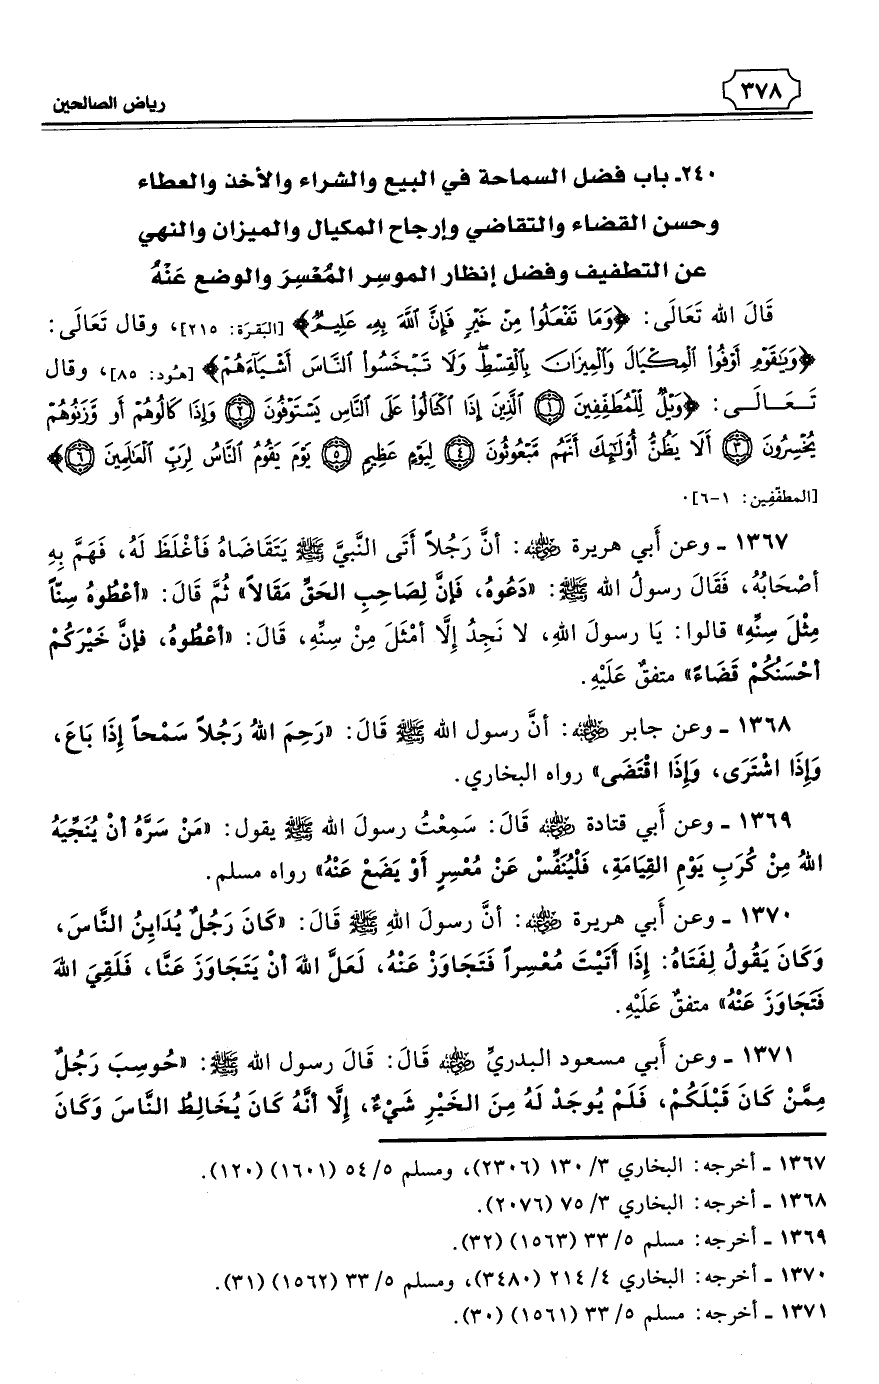 ٣٧٨
رياض الصالحين
٢٤٠ـ باب فضل السماحة في البيع والشراء والأخذ والعطاء
وحسن القضاء والتقاضي وإرجاح المكيال والميزان والنهي
عن التطفيف وفضل إنظار الموسِر المُعْسِرَ والوضع عَنْهُ
قَالَ الله تَعَالَى: ﴿وَمَا تَفْعَلُوا مِنْ خَيْرٍ فَإِنَّ ٱللَّهَ بِهِۦ عَلِيمٌ﴾ [البَقَرَة: ٢١٥]، وقال تَعَالَى:
﴿وَيَٰقَوْمِ أَوْفُوا۟ ٱلْمِكْيَالَ وَٱلْمِيزَانَ بِٱلْقِسْطِۖ وَلَا تَبْخَسُوا۟ ٱلنَّاسَ أَشْيَآءَهُمْ﴾ [هُود: ٨٥]، وقال
تَعَالَى: ﴿وَيْلٌ لِّلْمُطَفِّفِينَ ١ ٱلَّذِينَ إِذَا ٱكْتَالُوا۟ عَلَى ٱلنَّاسِ يَسْتَوْفُونَ ٢ وَإِذَا كَالُوهُمْ أَو وَّزَنُوهُمْ
يُخْسِرُونَ ٣ أَلَا يَظُنُّ أُو۟لَٰٓئِكَ أَنَّهُم مَّبْعُوثُونَ ٤ لِيَوْمٍ عَظِيمٍ ٥ يَوْمَ يَقُومُ ٱلنَّاسُ لِرَبِّ ٱلْعَٰلَمِينَ ٦﴾
[المطفّفِين: ١-٦].
١٣٦٧ ـ وعن أَبي هريرة ﵁: أنَّ رَجُلاً أَتَى النَّبيَّ ﷺ يَتَقَاضَاهُ فَأغْلَظَ لَهُ، فَهَمَّ بِهِ
أصْحَابُهُ، فَقَالَ رسولُ الله ﷺ: «دَعُوهُ، فَإنَّ لِصَاحِبِ الحَقِّ مَقَالاً» ثُمَّ قَالَ: «أعْطُوهُ سِنّاً
مِثْلَ سِنِّهِ» قالوا: يَا رسولَ اللهِ، لا نَجِدُ إلَّا أمْثَلَ مِنْ سِنِّهِ، قَالَ: «أعْطُوهُ، فإنَّ خَيْرَكُمْ
أحْسَنُكُمْ قَضَاءً» متفقٌ عَلَيْهِ.
١٣٦٨ ـ وعن جابر ﵁: أنَّ رسول الله ﷺ قَالَ: «رَحِمَ اللهُ رَجُلاً سَمْحاً إذَا بَاعَ،
وَإذَا اشْتَرَى، وَإذَا اقْتَضَى» رواه البخاري.
١٣٦٩ ـ وعن أَبي قتادة ﵁ قَالَ: سَمِعْتُ رسولَ الله ﷺ يقول: «مَنْ سَرَّهُ أنْ يُنَجِّيَهُ
اللهُ مِنْ كُرَبِ يَوْمِ القِيَامَةِ، فَلْيُنَفِّسْ عَنْ مُعْسِرٍ أوْ يَضَعْ عَنْهُ» رواه مسلم.
١٣٧٠ ـ وعن أَبي هريرة ﵁: أنَّ رسولَ اللهِ ﷺ قَالَ: «كَانَ رَجُلٌ يُدَايِنُ النَّاسَ،
وَكَانَ يَقُولُ لِفَتَاهُ: إذَا أَتَيْتَ مُعْسِراً فَتَجَاوَزْ عَنْهُ، لَعَلَّ اللهَ أنْ يَتَجَاوَزَ عَنَّا، فَلَقِيَ اللهَ
فَتَجَاوَزَ عَنْهُ» متفقٌ عَلَيْهِ.
١٣٧١ ـ وعن أَبي مسعود البدريِّ ﵁ قَالَ: قَالَ رسول الله ﷺ: «حُوسِبَ رَجُلٌ
مِمَّنْ كَانَ قَبْلَكُمْ، فَلَمْ يُوجَدْ لَهُ مِنَ الخَيْرِ شَيْءٌ، إلَّا أنَّهُ كَانَ يُخَالِطُ النَّاسَ وَكَانَ
١٣٦٧ ـ أخرجه: البخاري ٣/ ١٣٠ (٢٣٠٦)، ومسلم ٥/ ٥٤ (١٦٠١) (١٢٠).
١٣٦٨ ـ أخرجه: البخاري ٣/ ٧٥ (٢٠٧٦).
١٣٦٩ ـ أخرجه: مسلم ٥/ ٣٣ (١٥٦٣) (٣٢).
١٣٧٠ ـ أخرجه: البخاري ٤/ ٢١٤ (٣٤٨٠)، ومسلم ٥/ ٣٣ (١٥٦٢) (٣١).
١٣٧١ ـ أخرجه: مسلم ٥/ ٣٣ (١٥٦١) (٣٠).